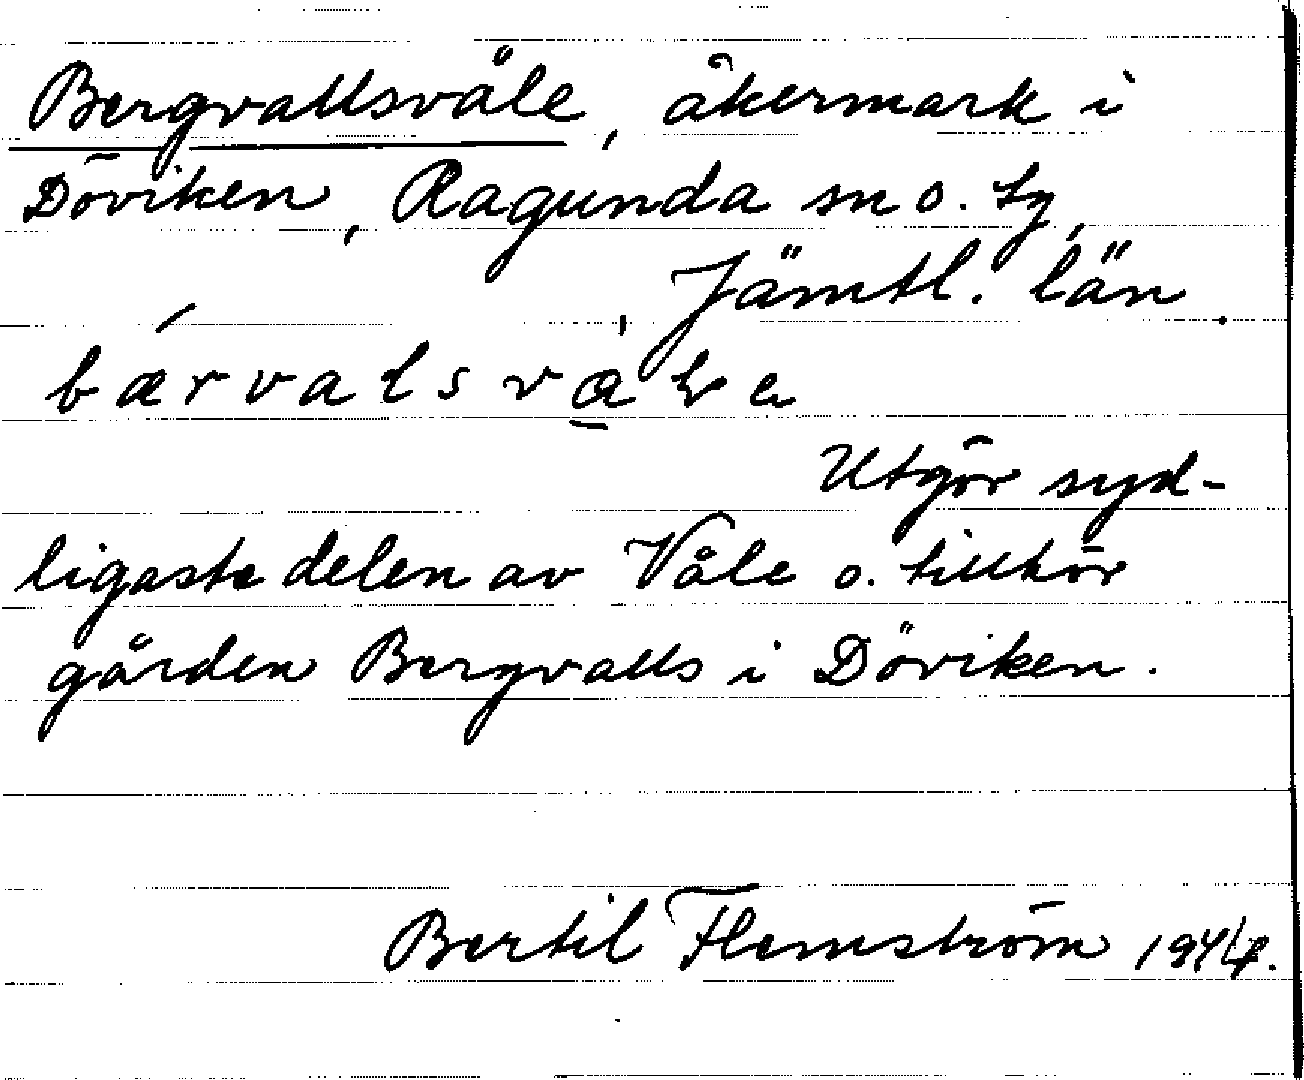 Bergvallsvåle, åkermark i
Döviken, Ragunda sn o. tg,
Jämtl. län.
bǽrvalsva̲
Utgör syd-
ligaste delen av Våle o. tillhör
gården Bergvalls i Döviken.
Bertil Flemström 1944.